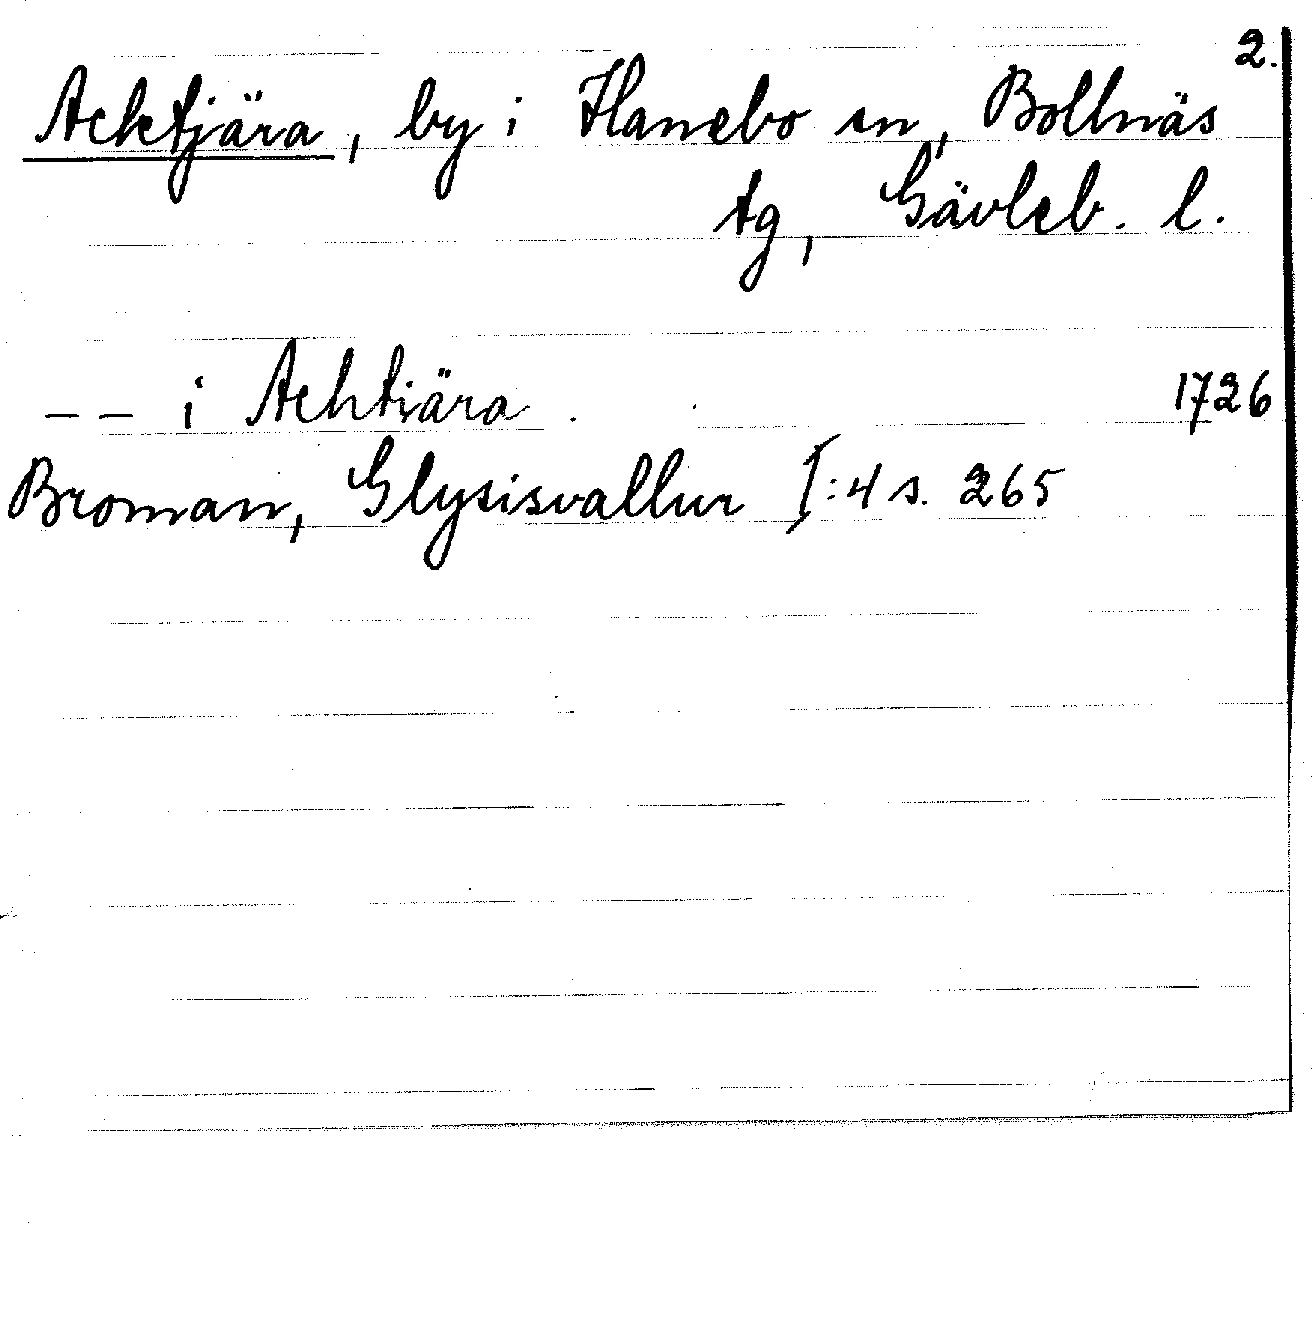 2.
Acktjära, by i Hanebo sn, Bollnäs
tg, Gävleb. l.
-- i Achtiära. 1726
Broman, Glysisvallur I:4 s. 265